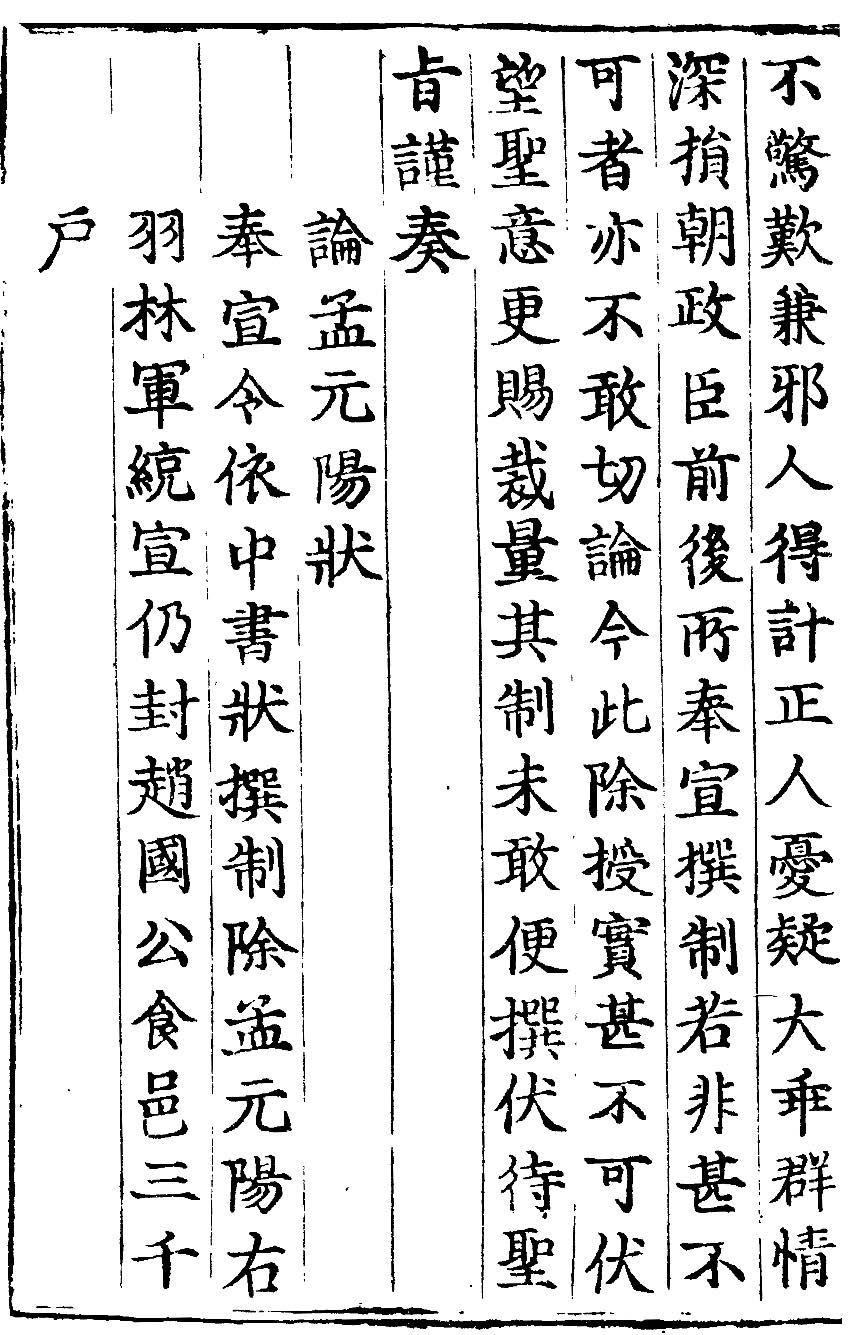 不驚歎兼邪人得計正人憂疑大乖群情
深損朝政臣前後所奉宣撰制若非甚不
可者亦不敢切論今此除授實甚不可伏
望聖意更賜裁量其制未敢便撰伏待聖
旨謹奏
論孟元陽狀
奉宣令依中書狀撰制除孟元陽右
羽林軍統宣仍封趙國公食邑三千
戶